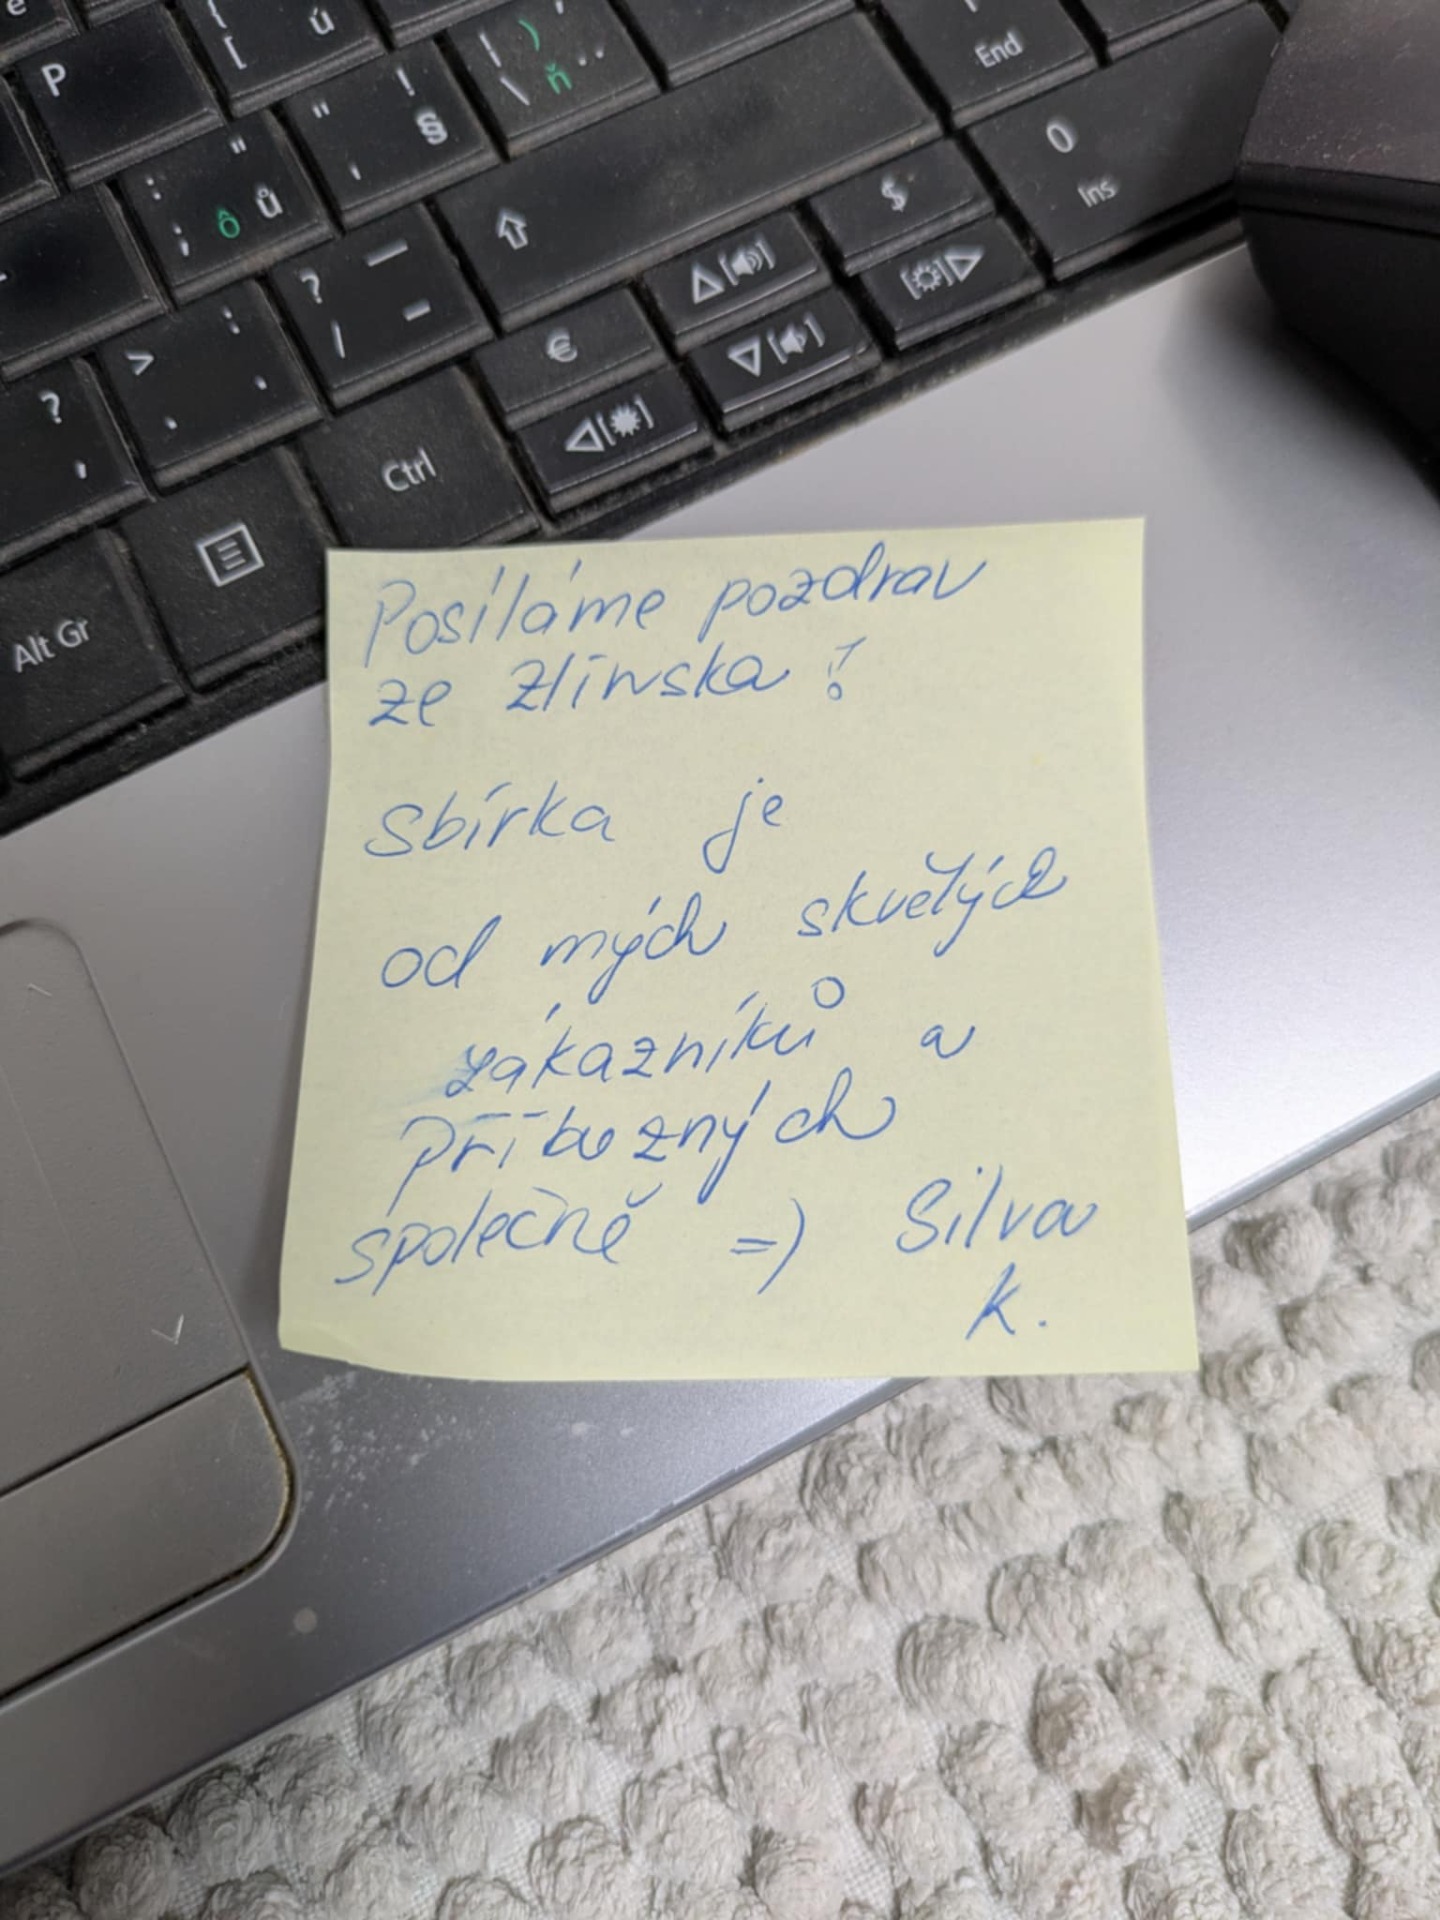 P
[ ú
" ! §
\ ) ň
End
0
Ins
: " ; ô ů
$
? _ / -
> : .
€
? ,
Ctrl
Alt Gr
Posíláme pozdrav
ze Zlínska !
Sbírka je
od mých skvělých
zákazníků a
příbuzných
společně =) Silva
K.